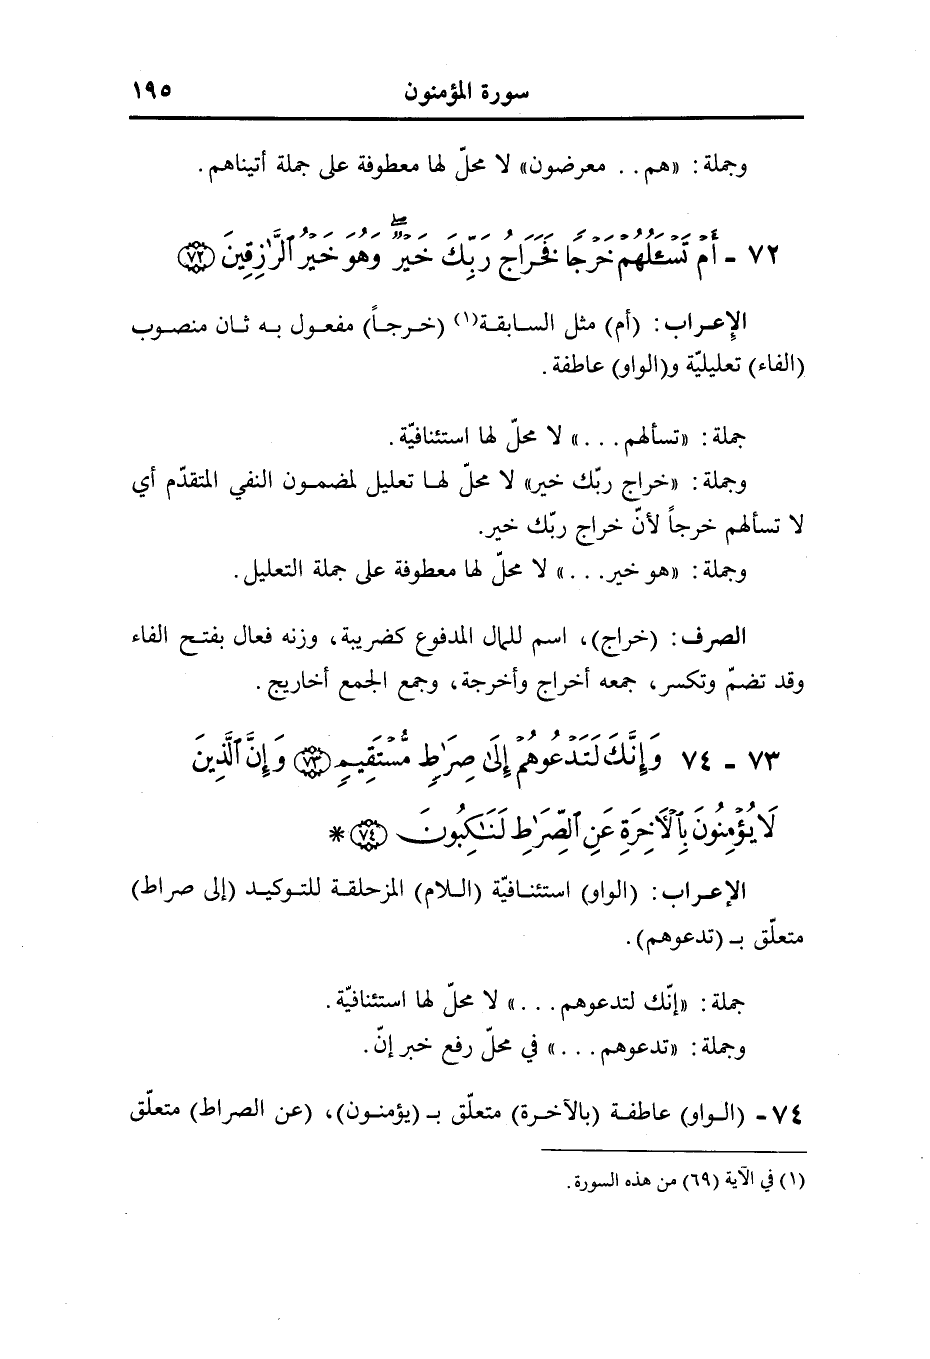 سورة المؤمنون ١٩٥
وجملة: «هم.. معرضون» لا محلّ لها معطوفة على جملة أتيناهم.
٧٢ - أَمْ تَسْـَٔلُهُمْ خَرْجًا فَخَرَاجُ رَبِّكَ خَيْرٌ ۖ وَهُوَ خَيْرُ ٱلرَّٰزِقِينَ ٧٢
الإعراب: (أم) مثل السابقة(١) (خرجاً) مفعول به ثان منصوب
(الفاء) تعليليّة و(الواو) عاطفة.
جملة: «تسألهم...» لا محلّ لها استئنافيّة.
وجملة: «خراج ربّك خير» لا محلّ لها تعليل لمضمون النفي المتقدّم أي
لا تسألهم خرجاً لأنّ خراج ربّك خير.
وجملة: «هو خير...» لا محلّ لها معطوفة على جملة التعليل.
الصرف: (خراج)، اسم للمال المدفوع كضريبة، وزنه فعال بفتح الفاء
وقد تضمّ وتكسر، جمعه أخراج وأخرجة، وجمع الجمع أخاريج.
٧٣ - ٧٤ وَإِنَّكَ لَتَدْعُوهُمْ إِلَىٰ صِرَٰطٍ مُّسْتَقِيمٍ ٧٣ وَإِنَّ ٱلَّذِينَ
لَا يُؤْمِنُونَ بِٱلْأَخِرَةِ عَنِ ٱلصِّرَٰطِ لَنَـٰكِبُونَ ٧٤ *
الإعراب: (الواو) استئنافيّة (اللام) المزحلقة للتوكيد (إلى صراط)
متعلّق بـ (تدعوهم).
جملة: «إنّك لتدعوهم...» لا محلّ لها استئنافيّة.
وجملة: «تدعوهم...» في محلّ رفع خبر إنّ.
٧٤- (الواو) عاطفة (بالآخرة) متعلّق بـ (يؤمنون)، (عن الصراط) متعلّق
(١) في الآية (٦٩) من هذه السورة.